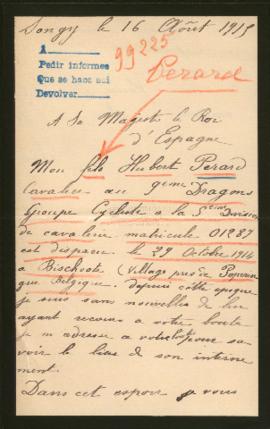 Songy le 16 Août 1915
A
Pedir informes
Que se hace aci
Devolver
99225
Perard
A Sa Majesté le Roi
d'Espagne
Mon fils Hubert Perard
Cavalier au 9eme Dragons
Groupe Cycliste a la 5eme Division
de cavalerie matricule 01237
est disparu le 29 Octobre 1914
a Bischoote (Village près de
que Belgique. depuis cette époque
je suis sans nouvelles de lui
ayant recours votre bonté
je m adresse a pour sa
voir le lieu de son interne
ment.
Dans cet espoir je vous